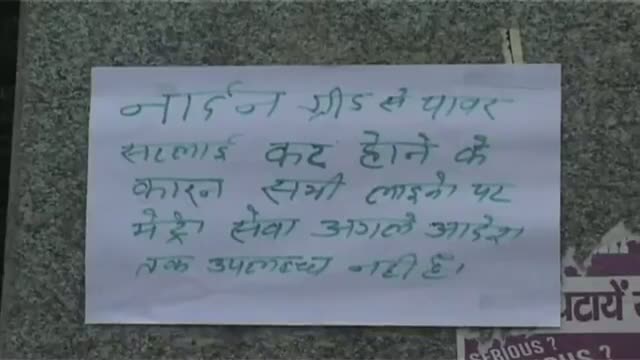 नार्दन ग्रीड से पावर
सप्लाई कट होने के
कारन सभी लाइनो पर
मेट्रो सेवा अगले आदेश
तक उपलब्ध नही है।
घटायें
SERIOUS ?